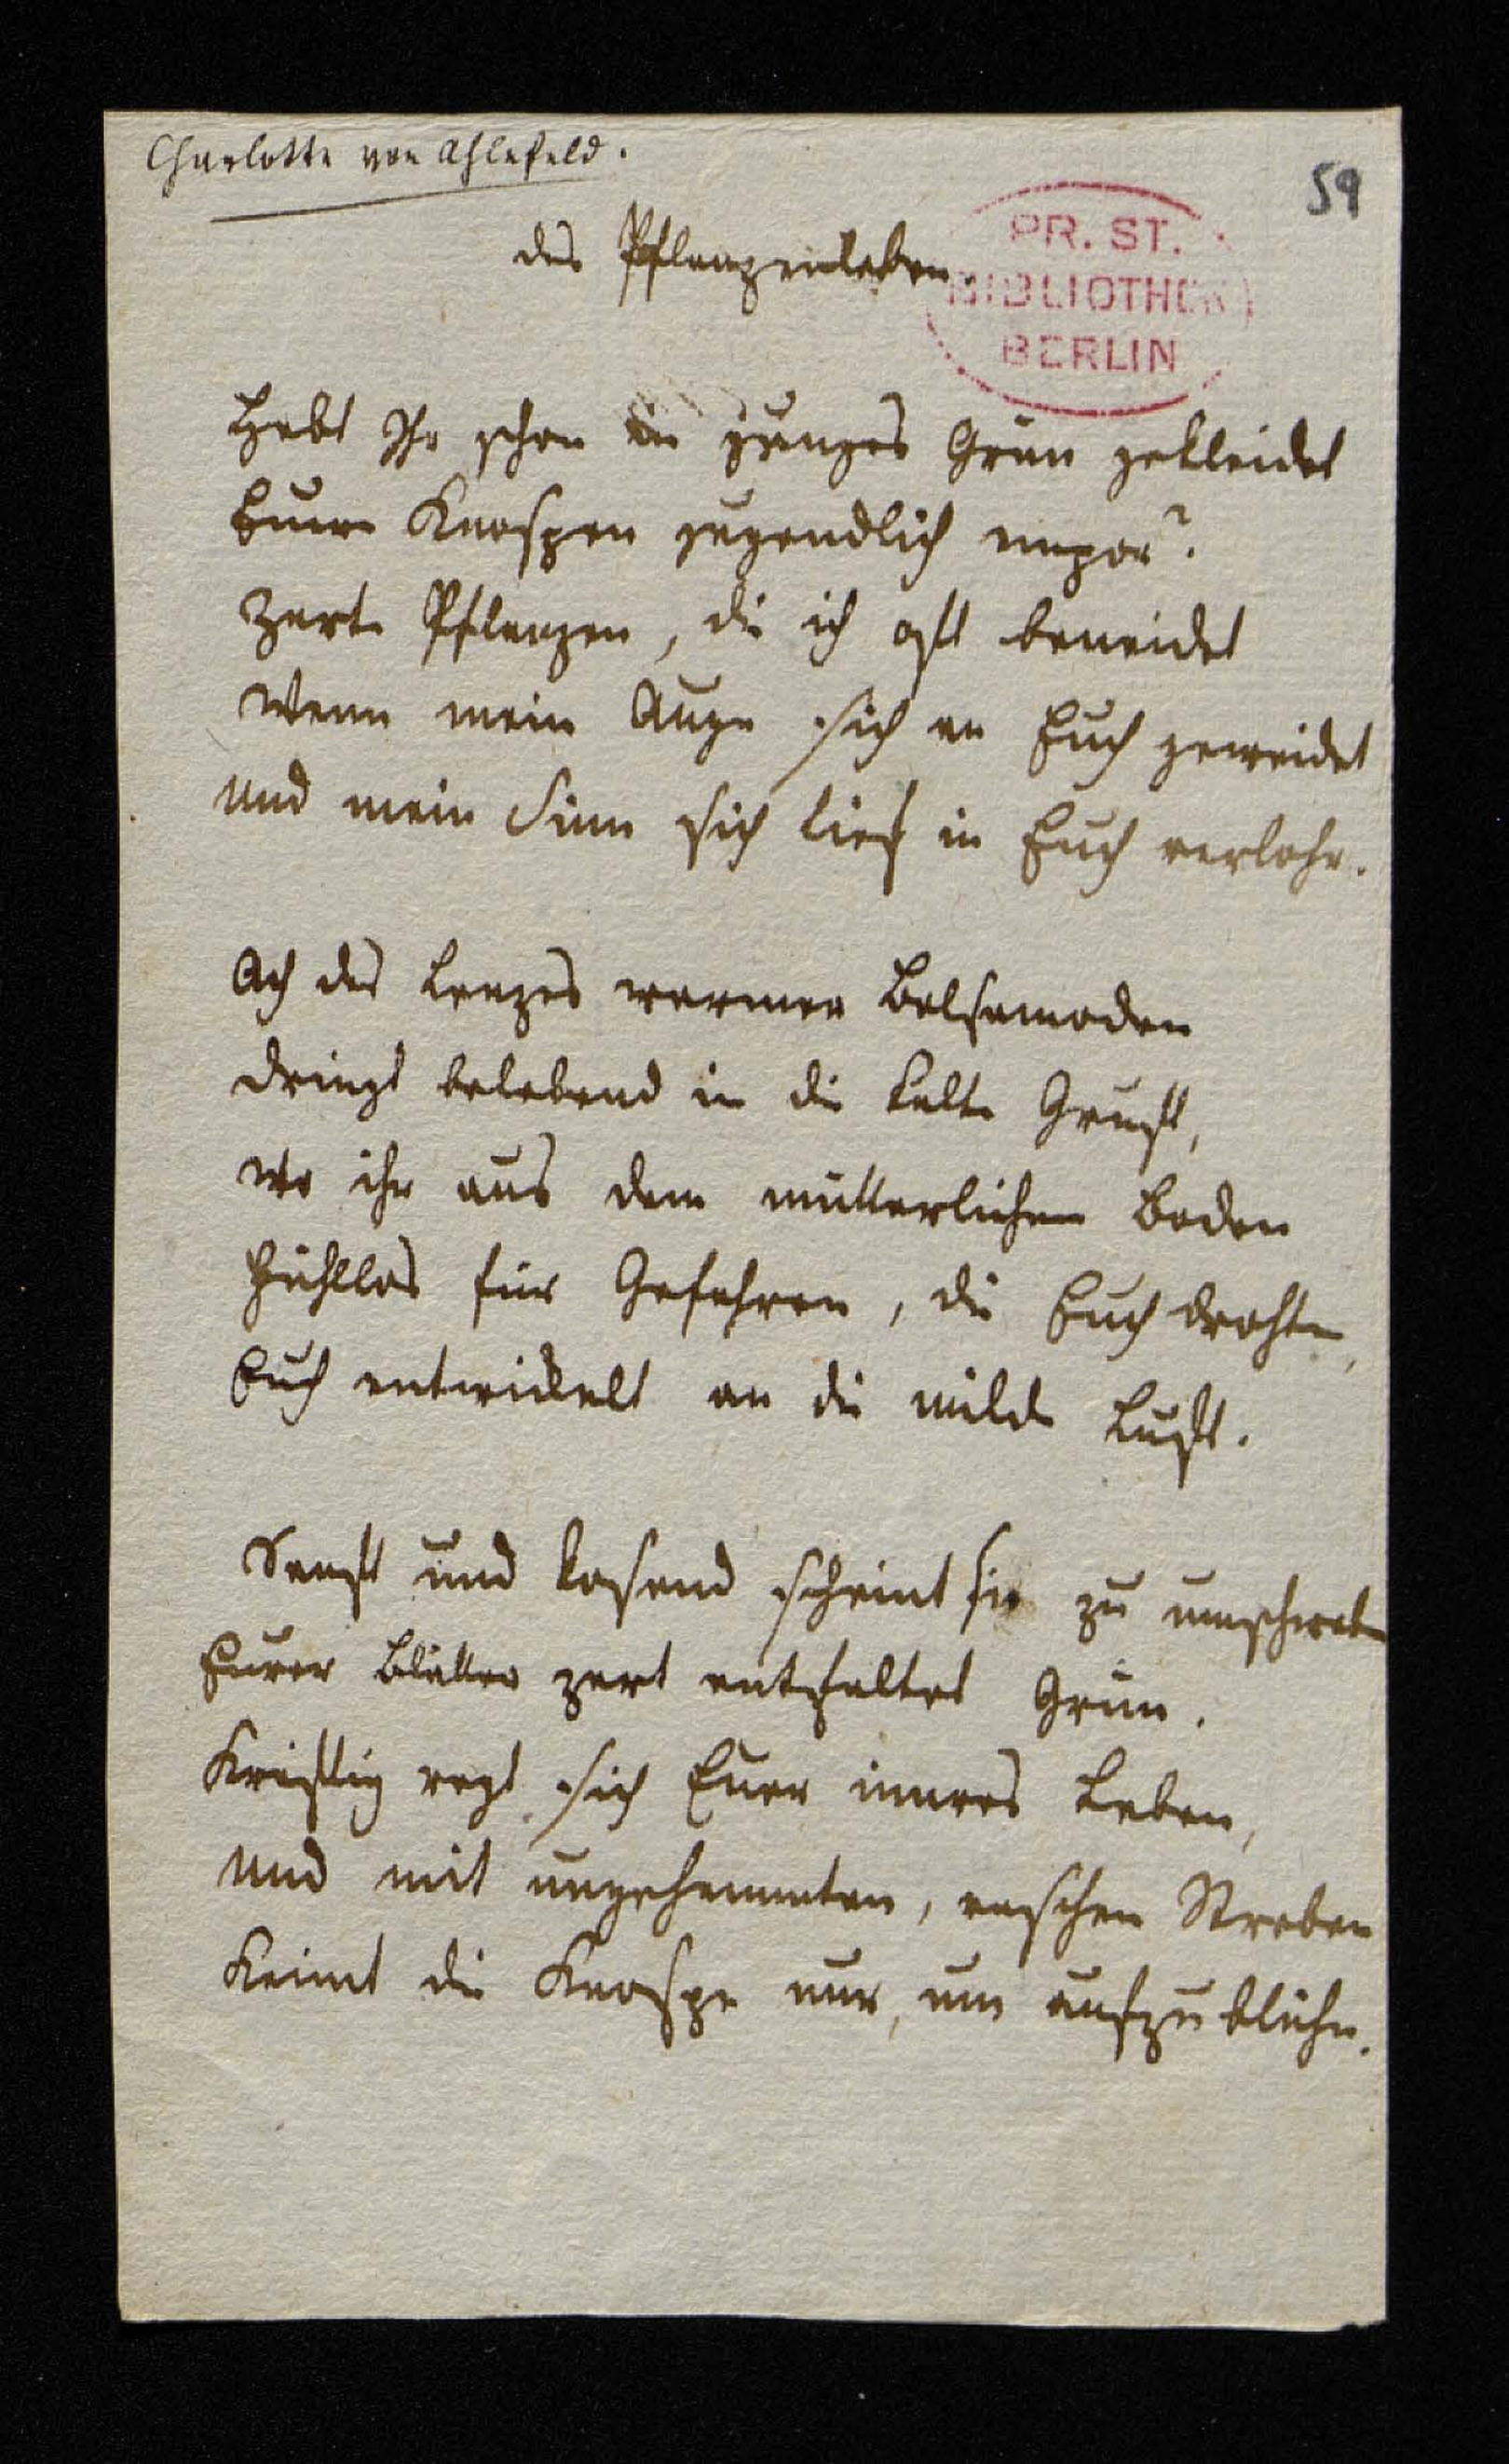 Charlotte von Ahlefeld.
59
PR. ST.
BIBLIOTHEK
BERLIN
das Pflanzenleben.
Hebt Ihr schon in junges Grün gekleidet
Eure Knospen jugendlich empor?
Zarte Pflanzen, die ich oft beneidet
Wenn mein Auge sich an Euch geweidet
Und mein Sinn sich tief in Euch verlohr.
Ach des Lenzes warmer Balsamoden
Dringt belebend in die kalte Gruft,
Wo ihr aus dem mütterlichen Boden
Fühllos für Gefahren, die Euch drohten,
Euch entwickelt an die milde Luft.
Sanft und kosend scheint sie zu umschweben
Eurer Blätter zart entfaltet Grün.
Kräftig regt sich Euer innres Leben,
Und mit ungehemmten, raschen Streben
Keimt die Knospe nur, um aufzublühn.